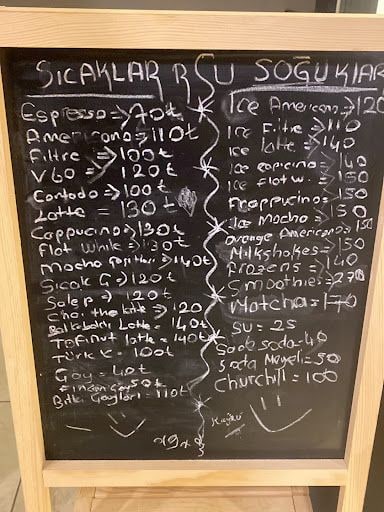 SICAKLAR
Espresso => 70t
Americano => 110t
Filtre => 100t
V60 => 120t
Contado => 100t
Latte = 130t
Cappucino => 130t
Flat White => 130t
Mocha => 140t
Sıcak Ç => 120t
Salep => 120t
Chai tea latte => 120
Latte = 140t
Tofinut latte = 140t
Türk K = 100t
Çay = 40t
Fincan Çay 50t
Bitki Çayları = 110t
SU
SOĞUKLAR
Ice Americano => 120
Ice Filtre => 110
Ice latte = 140
Ice capicino = 140
Ice flat w. = 150
Frappucino = 150
Ice Mocha = 150
Orange Americano = 150
Milkshakes = 150
Frozens = 140
Smoothies = 270
Matcha = 170
SU = 25
Sade soda = 40
Soda Meyveli = 50
Churchill = 100